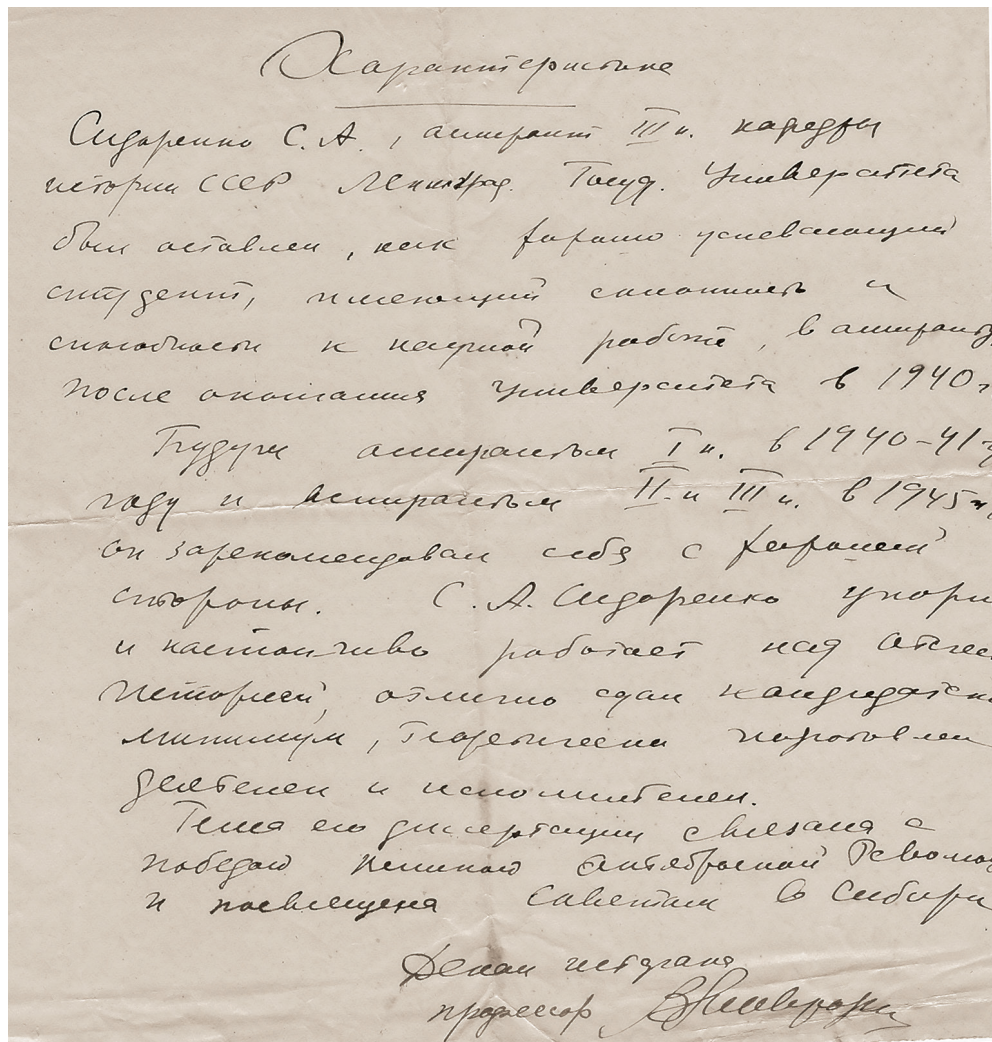 Характеристика
Сидоренко С. А., аспирант III к. кафедры
истории СССР Ленинград. Госуд. Университета
был оставлен, как хорошо успевающий
студент, имеющий склонность и
способности к научной работе, в аспирант
после окончания Университета в 1940 г
Будучи аспирантом I к. в 1940-41
году и аспирантом II и III к. в 1945 г.
он зарекомендовал себя с хорошей
стороны. С. А. Сидоренко упорн
и настойчиво работает над отечес
историей, отлично сдал кандидатск
минимум, теоретически подготовлен
деятелен и исполнителен.
Тема его диссертации связана с
победою великою Октябрьской Революц
и посвящена Советам в Сибири
Декан истфака
профессор